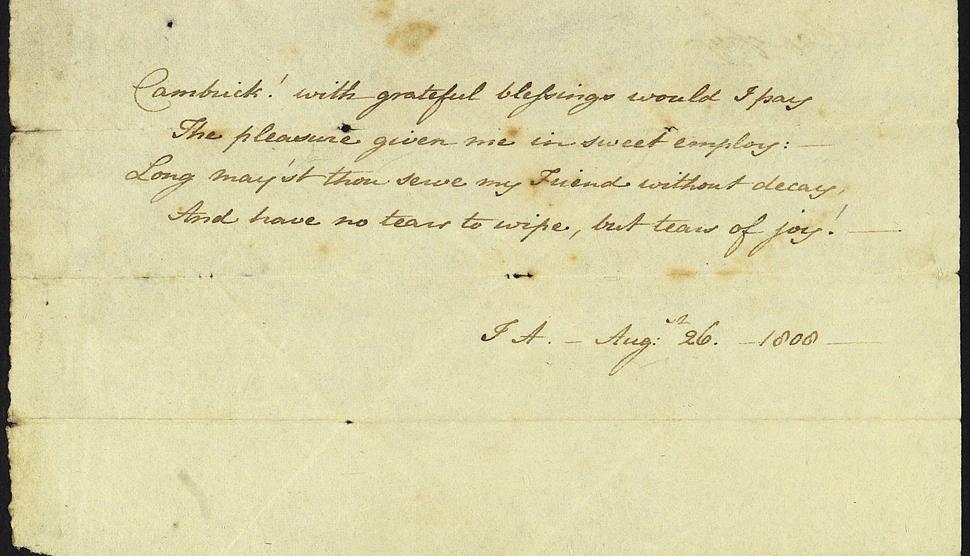 Cambrick! with grateful blessings would I pay
The pleasure given me in sweet employ:—
Long may'st thou serve my Friend without decay,
And have no tears to wipe, but tears of joy!—
J A. — Augst 26. —1808—